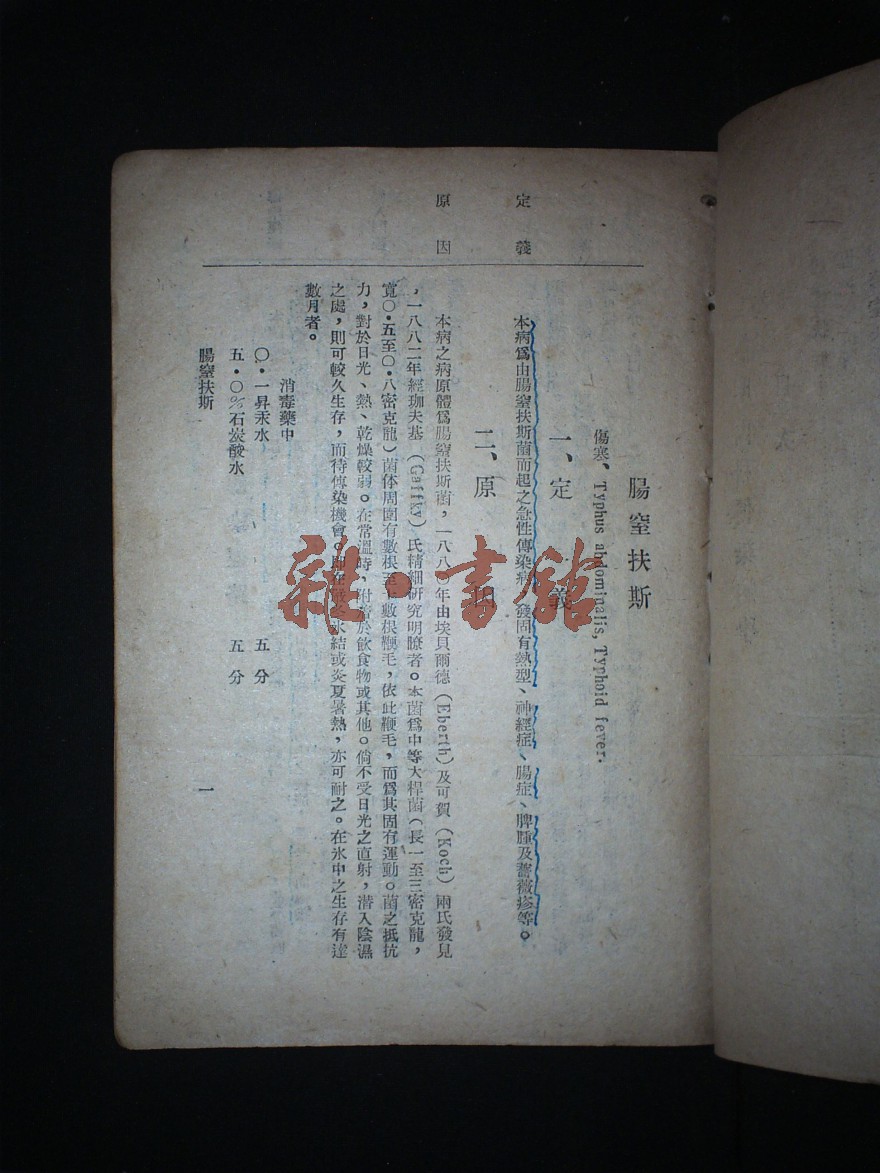 腸窒扶斯
傷寒、Typhus abdominalis, Typhoid fever.
一、定義
定義
本病爲由腸窒扶斯菌而起之急性傳染病，發固有熱型、神經症、腸症、脾腫及薔薇疹等。
二、原因
原因
本病之病原體爲腸窒扶斯菌，一八八〇年由埃貝爾德（Eberth）及可賀（Koch）兩氏發見
，一八八二年經珈夫基（Gaffky）氏精細研究明瞭者。本菌爲中等大桿菌（長一至三密克龍，
寬〇・五至〇・八密克龍）菌体周圍有數根至十數根鞭毛，依此鞭毛，而爲其固有運動。菌之抵抗
力，對於日光、熱、乾燥較弱。在常溫時，附着於飲食物或其他。倘不受日光之直射，潛入陰濕
之處，則可較久生存，而待傳染機會。即在嚴冬冰結或炎夏暑熱，亦可耐之。在氷中之生存有達
數月者。
消毒藥中
〇・一昇汞水 五分
五・〇％石炭酸水 五分
腸窒扶斯 一
雜・書館